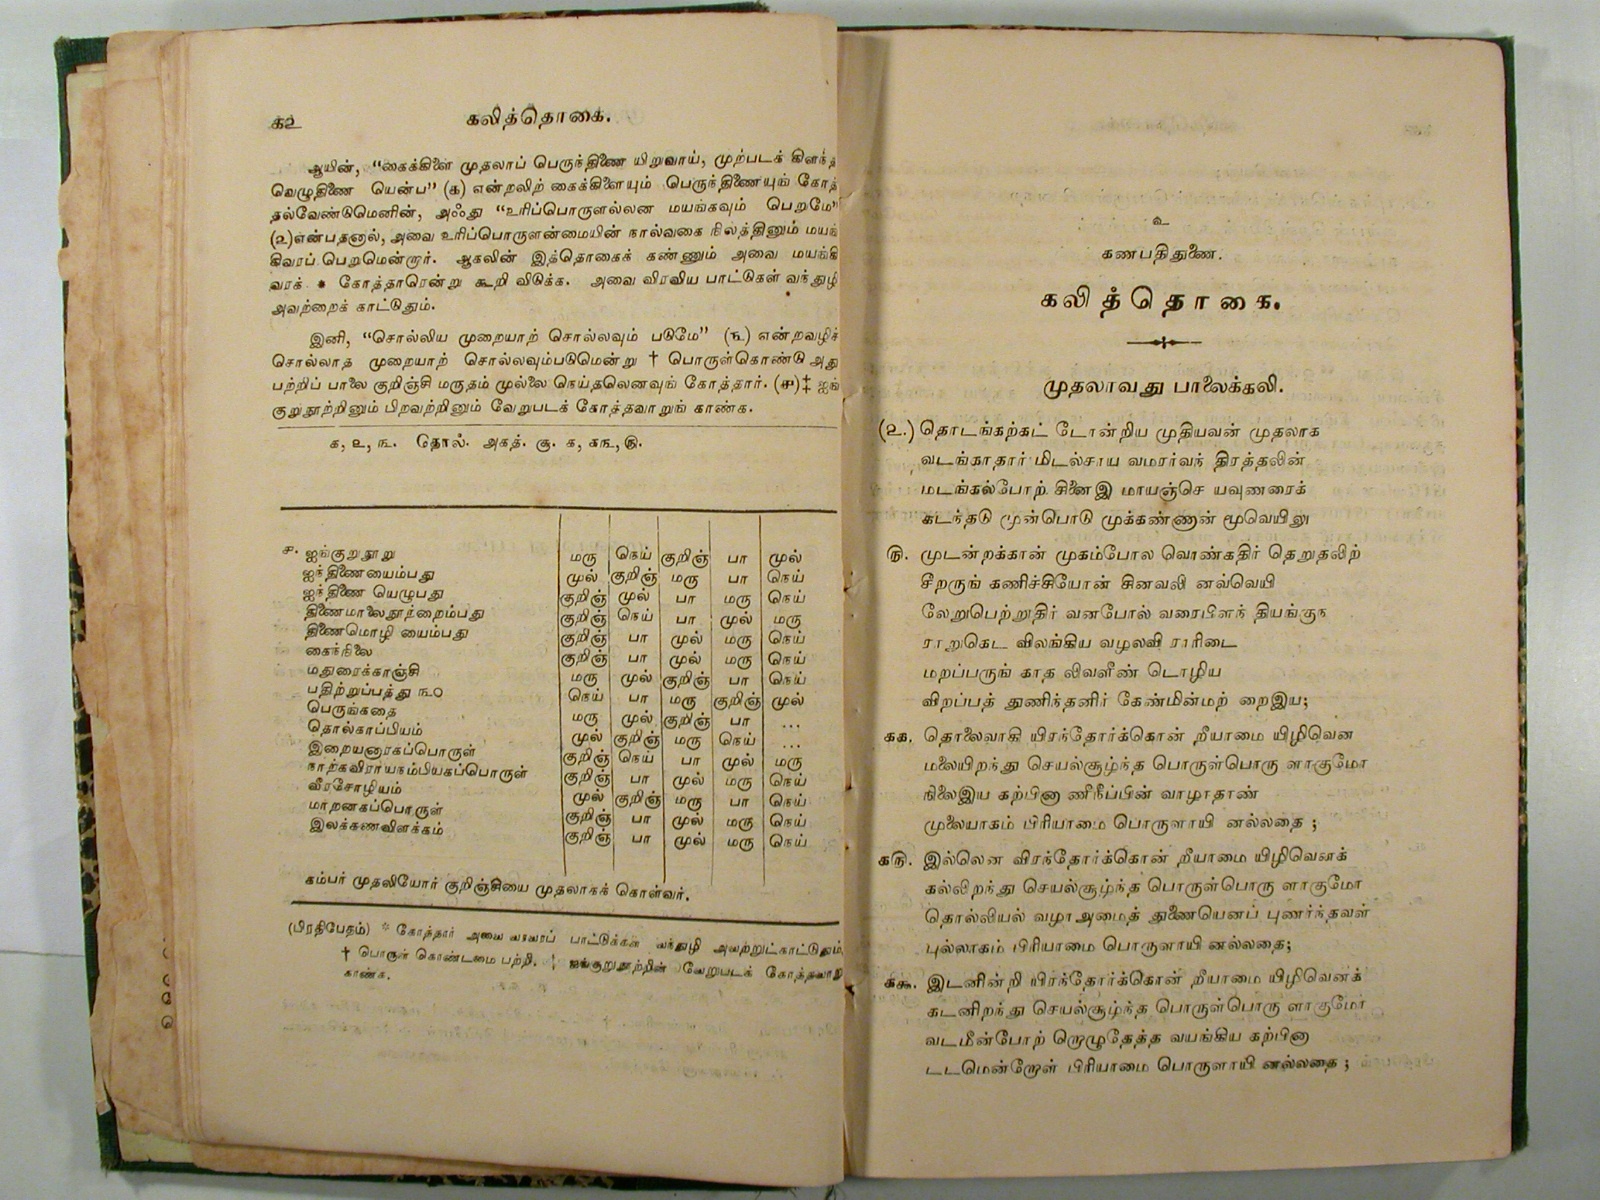 ௧௨
கலித்தொகை.
ஆயின், “கைக்கிளை முதலாப் பெருந்திணை யிறுவாய், முற்படக் கிளந்த
வெழுதிணை யென்ப” (௧) என்றலிற் கைக்கிளையும் பெருந்திணையுங் கோத்
தல்வேண்டுமெனின், அஃது “உரிப்பொருளல்லன மயங்கவும் பெறுமே”
(௨) என்பதனால், அவை உரிப்பொருளன்மையின் நால்வகை நிலத்தினும் மயங்
கிவரப் பெறுமென்றார். ஆகலின் இத்தொகைக் கண்ணும் அவை மயங்கி
வரக் * கோத்தாரென்று கூறி விடுக்க. அவை விரவிய பாட்டுகள் வந்துழி
அவற்றைக் காட்டுதும்.
இனி, “சொல்லிய முறையாற் சொல்லவும் படுமே” (௩) என்றவழிச்
சொல்லாத முறையாற் சொல்லவும்படுமென்று † பொருள்கொண்டு அது
பற்றிப் பாலை குறிஞ்சி மருதம் முல்லை நெய்தலெனவுங் கோத்தார். (௪)‡ ஐங்
குறுநூற்றினும் பிறவற்றினும் வேறுபடக் கோத்தவாறுங் காண்க.
௧, ௨, ௩. தொல். அகத். சூ. ௧, ௧௩, ௫.
௪. ஐங்குறுநூறு மரு நெய் குறிஞ் பா முல்
ஐந்திணையைம்பது முல் குறிஞ் மரு பா நெய்
ஐந்திணை யெழுபது குறிஞ் முல் பா மரு நெய்
திணைமாலைநூற்றைம்பது குறிஞ் நெய் பா முல் மரு
திணைமொழி யைம்பது குறிஞ் பா முல் மரு நெய்
கைந்நிலை குறிஞ் பா முல் மரு நெய்
மதுரைக்காஞ்சி மரு முல் குறிஞ் பா நெய்
பதிற்றுப்பத்து ௩௦ நெய் பா மரு குறிஞ் முல்
பெருங்கதை மரு முல் குறிஞ் பா ...
தொல்காப்பியம் முல் குறிஞ் மரு நெய் ...
இறையனாரகப்பொருள் குறிஞ் நெய் பா முல் மரு
நாற்கவிராயநம்பியகப்பொருள் குறிஞ் பா முல் மரு நெய்
வீரசோழியம் முல் குறிஞ் மரு பா நெய்
மாறனகப்பொருள் குறிஞ் பா முல் மரு நெய்
இலக்கணவிளக்கம் குறிஞ் பா முல் மரு நெய்
கம்பர் முதலியோர் குறிஞ்சியை முதலாகக் கொள்வர்.
(பிரதிபேதம்) * கோத்தார் அவை வரப் பாட்டுக்கள் வந்துழி அவற்றுட்காட்டுதும்.
† பொருள் கொண்டமை பற்றி. ‡ ஐங்குறுநூற்றின் வேறுபடக் கோத்தவாறு
காண்க.
௨
கணபதிதுணை.
கலித்தொகை.
முதலாவது பாலைக்கலி.
(௨.) தொடங்கற்கட் டோன்றிய முதியவன் முதலாக
வடங்காதார் மிடல்சாய வமரர்வந் திரத்தலின்
மடங்கல்போற் சினைஇ மாயஞ்செ யவுணரைக்
கடந்தடு முன்பொடு முக்கண்ணான் மூவெயிலு
௫. முடன்றக்கான் முகம்போல வொண்கதிர் தெறுதலிற்
சீறருங் கணிச்சியோன் சினவலி னவ்வெயி
லேறுபெற்றுதிர் வனபோல் வரைபிளந் தியங்குந
ராறுகெட விலங்கிய வழலவி ராரிடை
மறப்பருங் காத லிவளீண் டொழிய
விறப்பத் துணிந்தனிர் கேண்மின்மற் றைஇய;
௧௧. தொலைவாகி யிரந்தோர்க்கொன் றீயாமை யிழிவென
மலையிறந்து செயல்சூழ்ந்த பொருள்பொரு ளாகுமோ
நிலைஇய கற்பினா ணீநீப்பின் வாழாதாண்
முலையாகம் பிரியாமை பொருளாயி னல்லதை ;
௧௫. இல்லென விரந்தோர்க்கொன் றீயாமை யிழிவெனக்
கல்லிறந்து செயல்சூழ்ந்த பொருள்பொரு ளாகுமோ
தொல்லியல் வழாஅமைத் துணையெனப் புணர்ந்தவள்
புல்லாகம் பிரியாமை பொருளாயி னல்லதை;
௧௯. இடனின்றி யிரந்தோர்க்கொன் றீயாமை யிழிவெனக்
கடனிறந்து செயல்சூழ்ந்த பொருள்பொரு ளாகுமோ
வடமீன்போற் றொழுதேத்த வயங்கிய கற்பினா
டடமென்றோள் பிரியாமை பொருளாயி னல்லதை ;